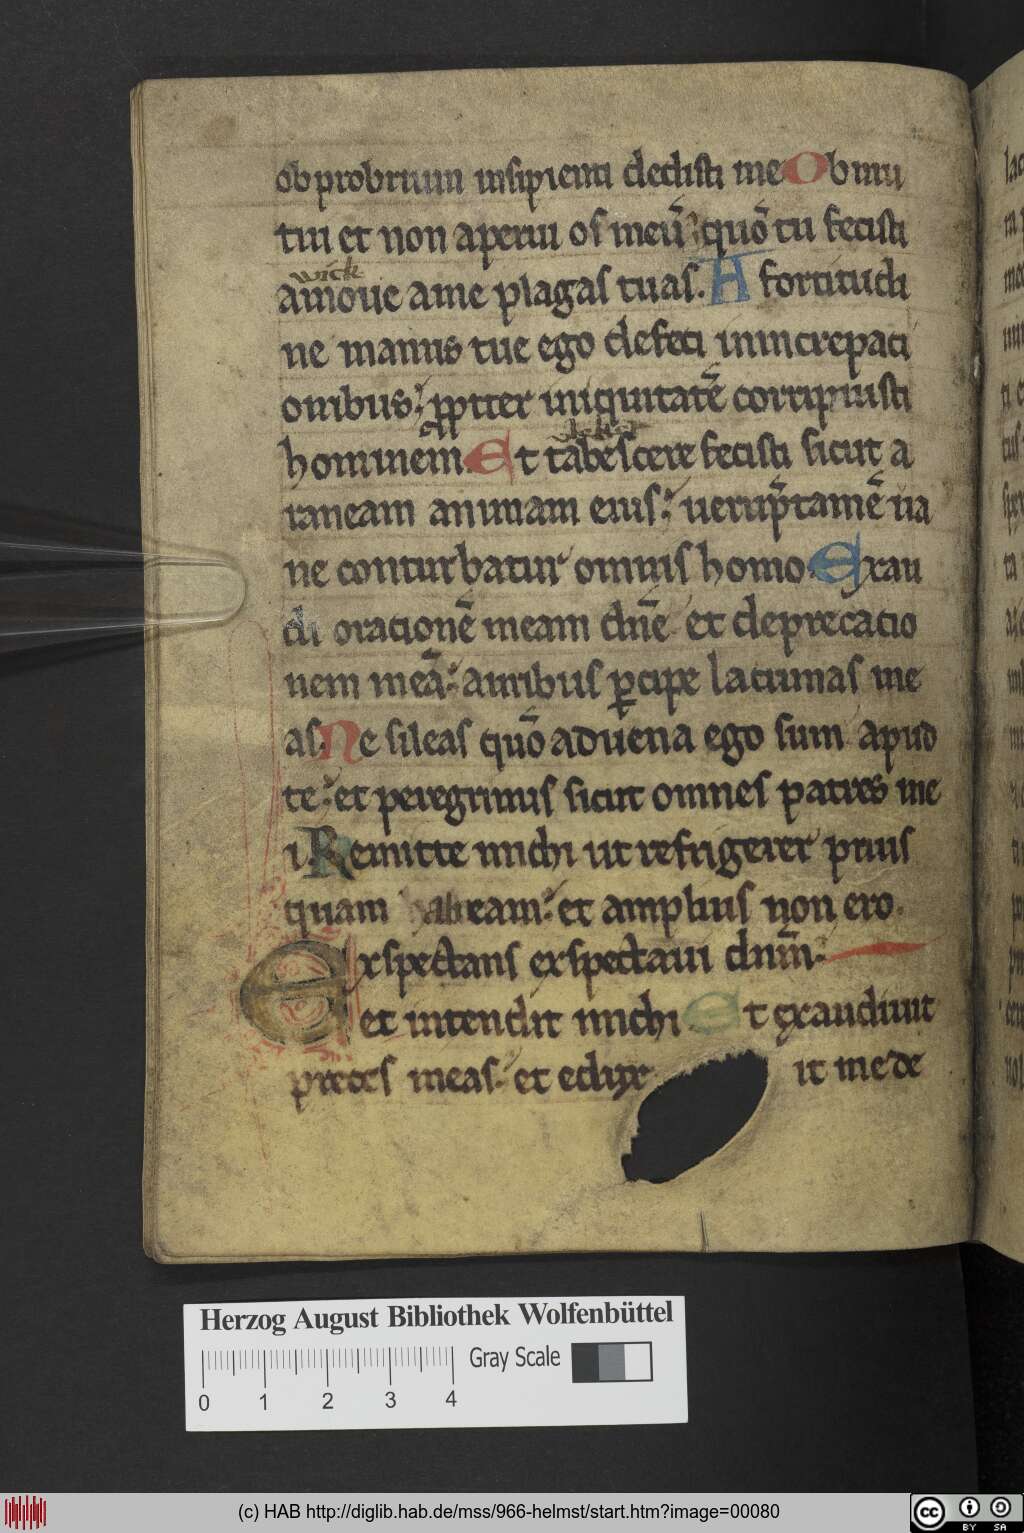 obprobrium insipienti dedisti me Obmu
tui et non aperui os meū quō tu fecisti
wick
amoue ame plagas tuas. A fortitudi
ne manus tue ego defeci inincrepaci
onibus; ꝓpter iniquitatē corripuisti
hominem̄. Et tabescere fecisti sicut a
raneam animam eius; uerūptamē ua
ne conturbatur omnis homo. Exau
di oracionē meam dn̄e et deprecacio
nem meā; auribus ꝑcipe lacrimas me
as. Ne sileas quō aduena ego sum apud
te; et peregrinus sicut omnes patres me
i Remitte michi ut refrigerer prius
quam habeam; et amplius non ero.
Exspectans exspectaui dn̄m;
et intendit michi Et exaudiuit
preces meas; et edux it me de
Herzog August Bibliothek Wolfenbüttel
Gray Scale
0 1 2 3 4
(c) HAB http://diglib.hab.de/mss/966-helmst/start.htm?image=00080
cc BY SA